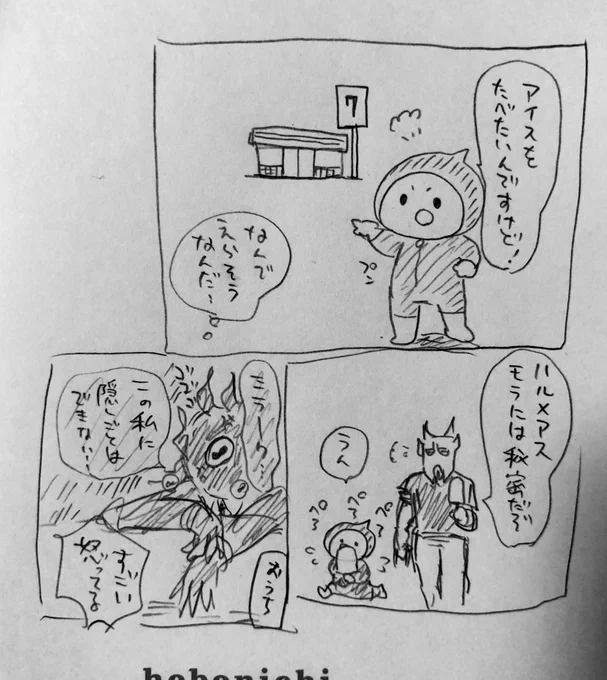 アイスを
たべたいんですけど！
7
プン
なんで
えらそう
なんだ…
ハルメアス
モラには秘密だぞ
うん
ぺろ
ぺろ
ぺろ
ミラーク…
ゴゴゴ
この私に
隠しごとは
できない…
おうち
すごい
怒ってる
hobonichi